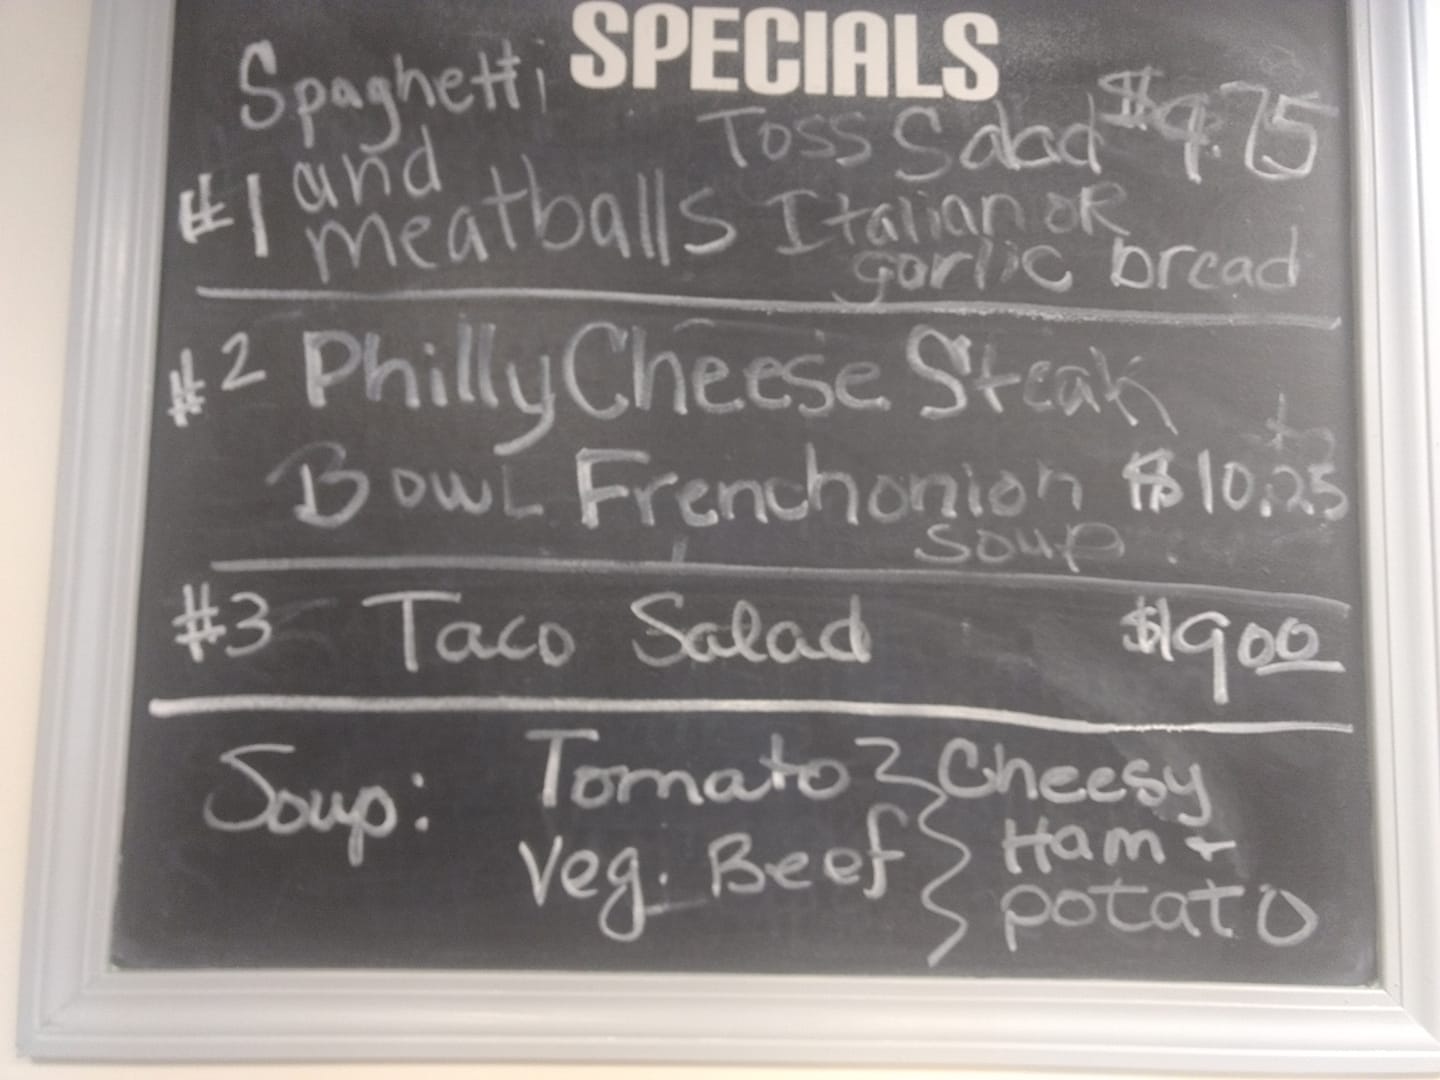 SPECIALS
Spaghetti
and
#1 meatballs
Toss Salad $9.75
Italian OR
garlic bread
#2 Philly Cheese Steak
Bowl French onion $10.25
soup
#3 Taco Salad $9.00
Soup: Tomato Cheesy
Veg. Beef Ham +
potato